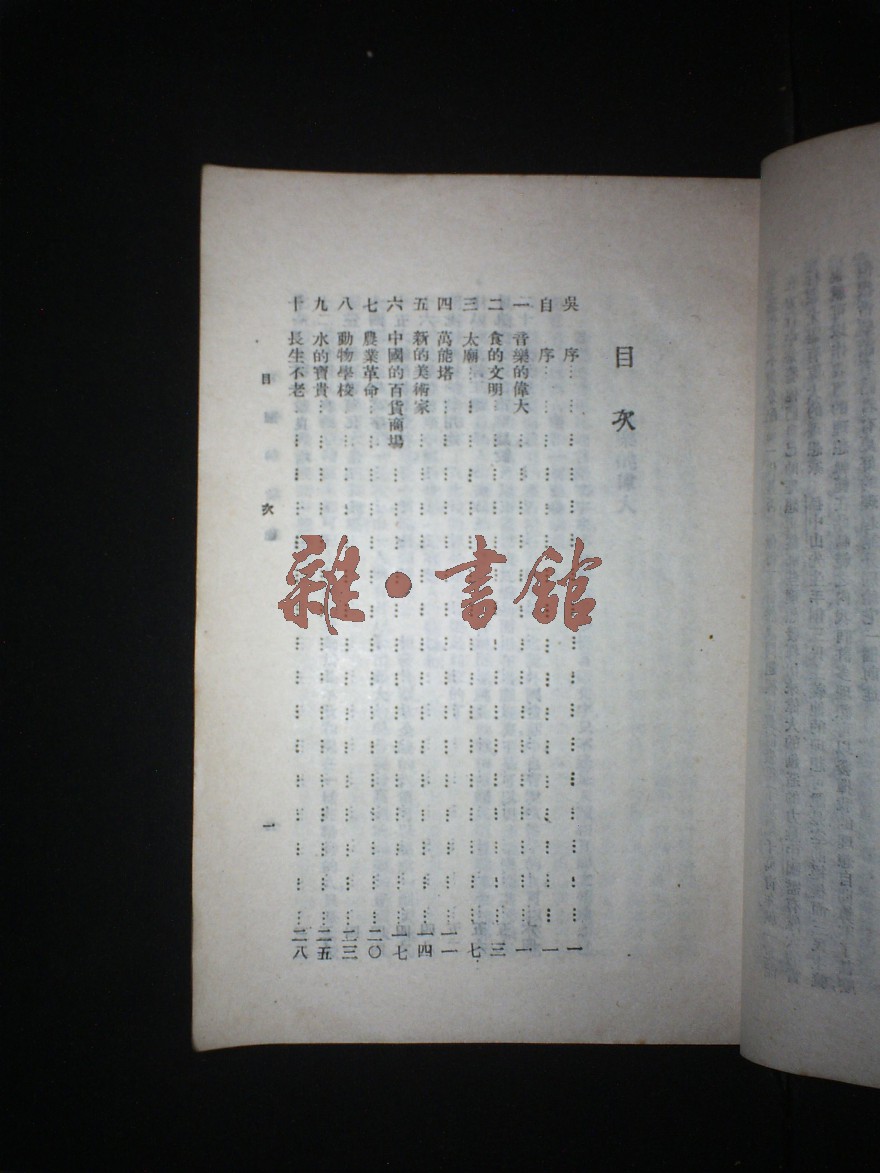 目次
吳 序 一
自 序 一
一 音樂的偉大 一
二 食的文明 三
三 太廟 七
四 萬能塔 一一
五 新的美術家 一四
六 中國的百貨商場 一七
七 農業革命 二〇
八 動物學校 二三
九 水的寶貴 二五
十 長生不老 二八
目 次
一
雜·書館